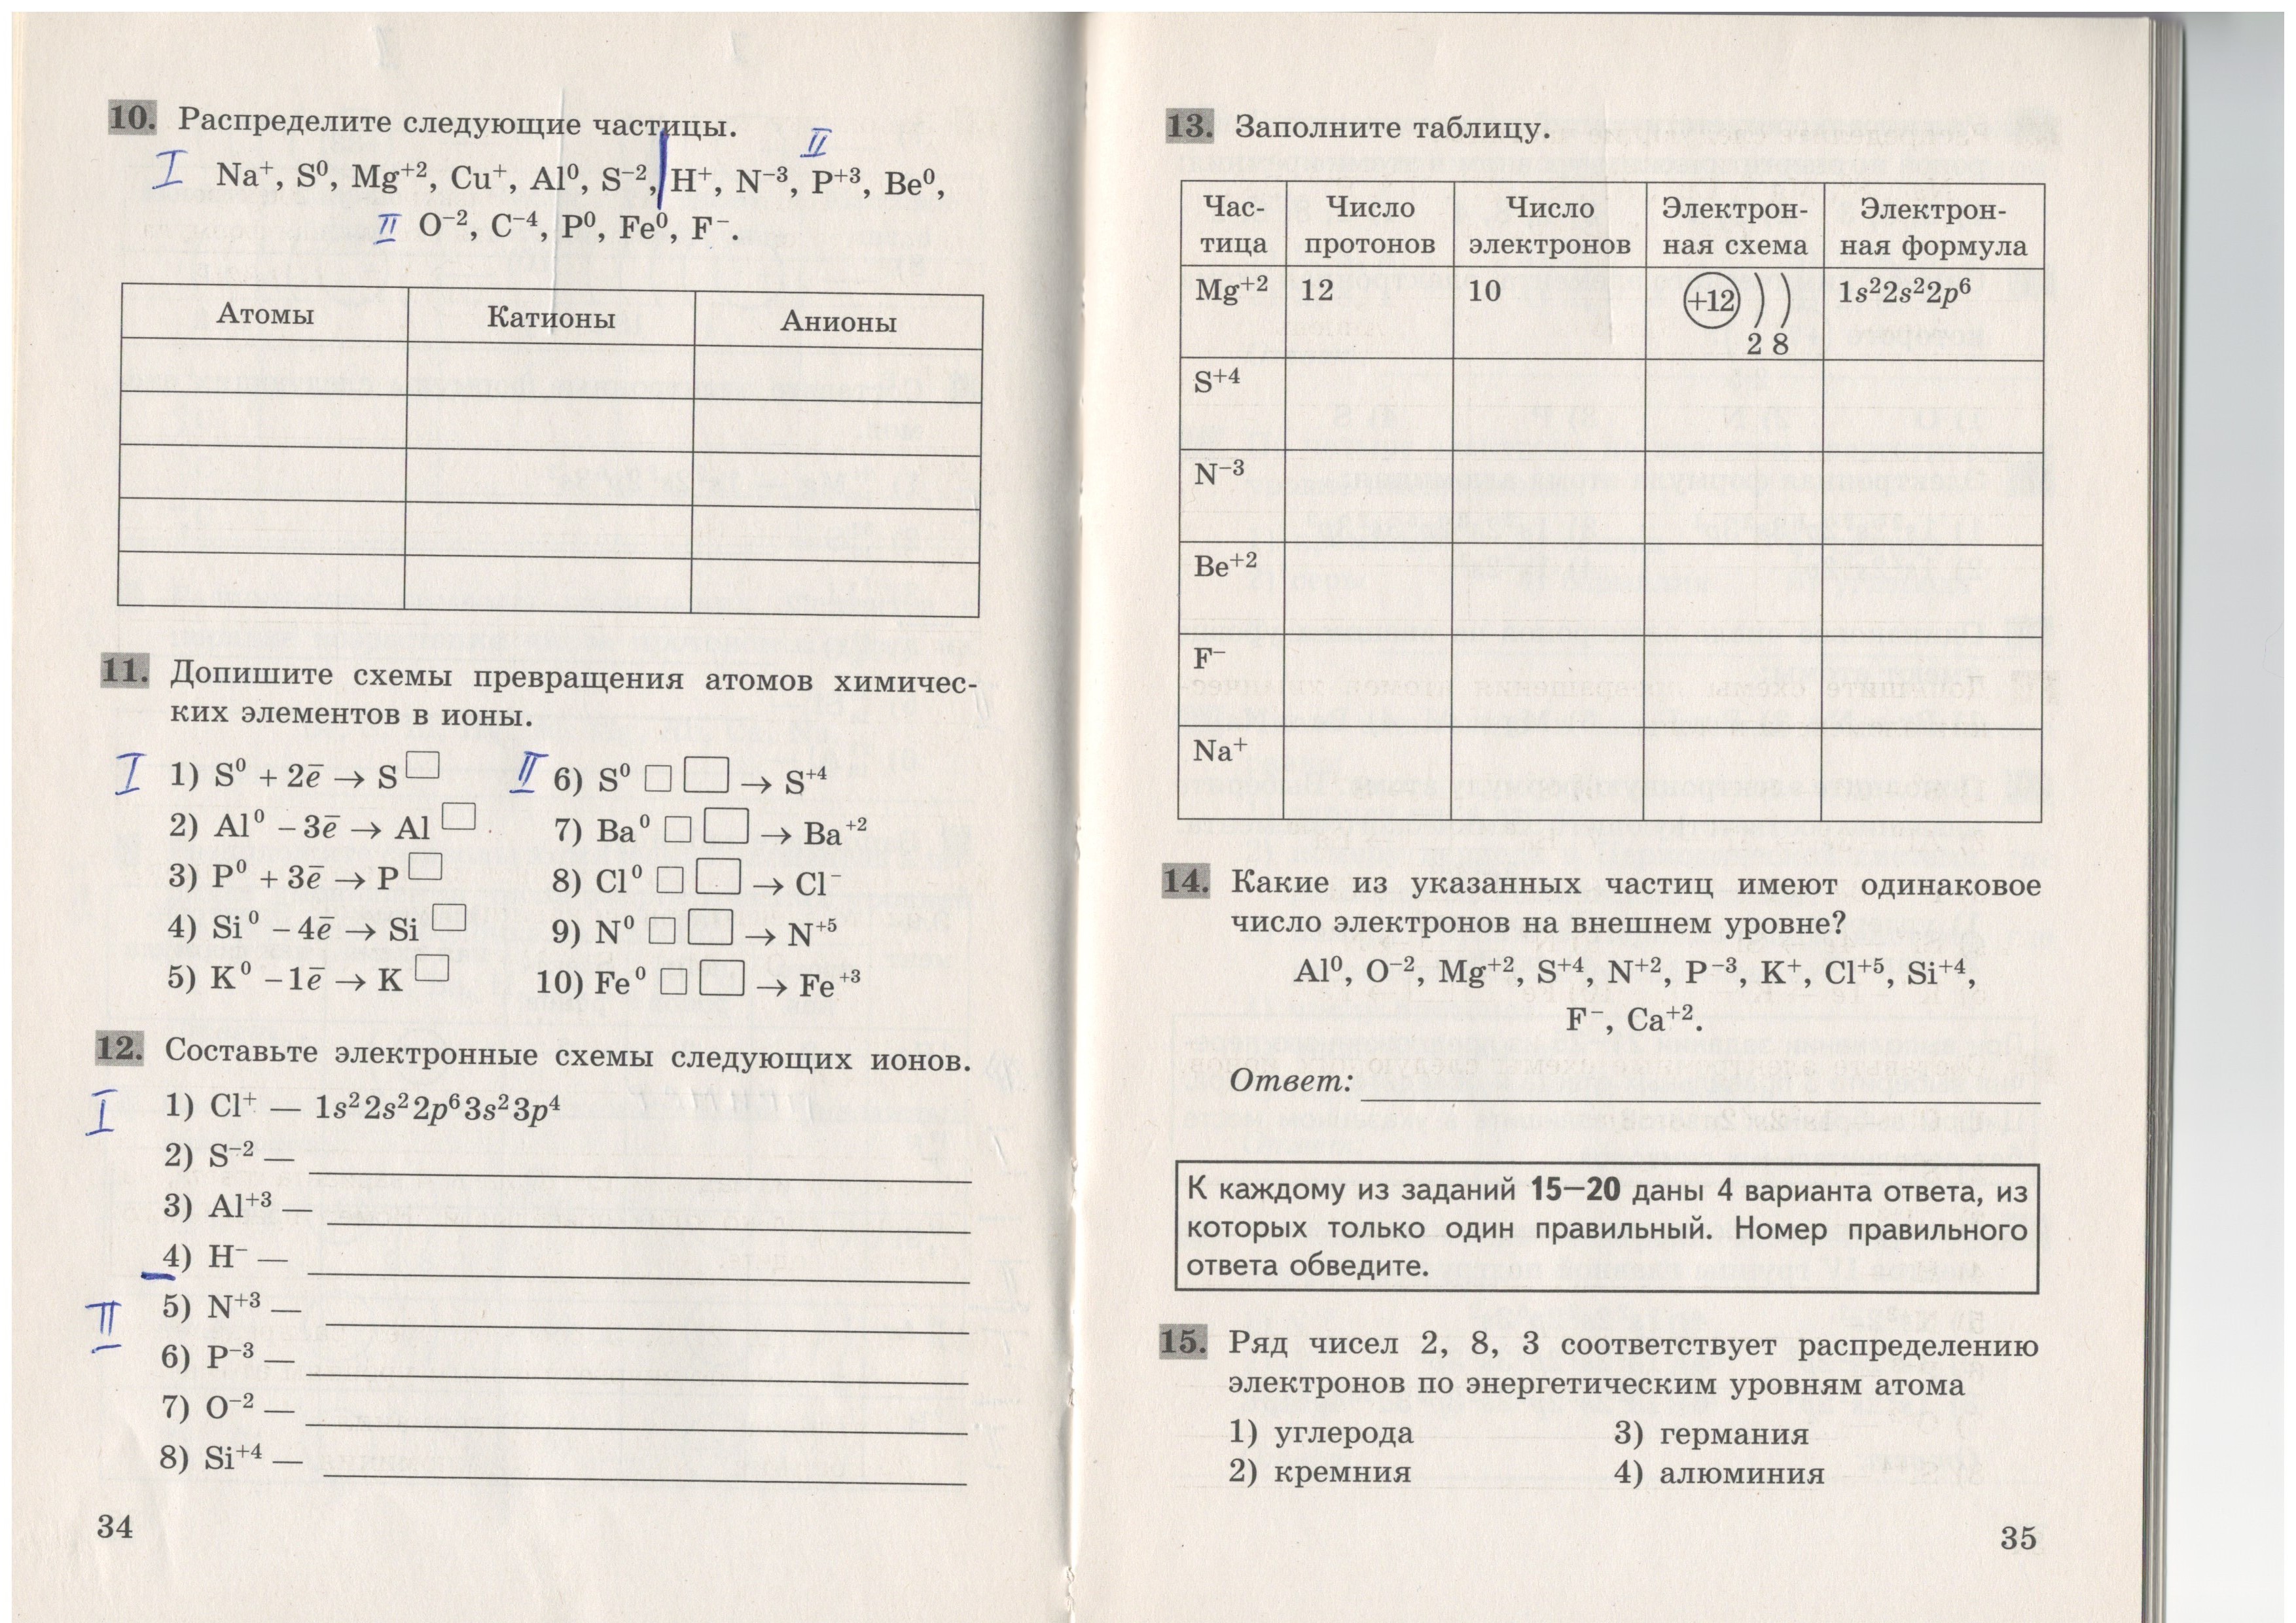 10. Распределите следующие частицы.
II
I Na⁺, S⁰, Mg⁺², Cu⁺, Al⁰, S⁻², H⁺, N⁻³, P⁺³, Be⁰,
II O⁻², C⁻⁴, P⁰, Fe⁰, F⁻.
Атомы Катионы Анионы
11. Допишите схемы превращения атомов химичес-
ких элементов в ионы.
I 1) S⁰ + 2ē → S□ II 6) S⁰ □ □ → S⁺⁴
2) Al⁰ – 3ē → Al□ 7) Ba⁰ □ □ → Ba⁺²
3) P⁰ + 3ē → P□ 8) Cl⁰ □ □ → Cl⁻
4) Si⁰ – 4ē → Si□ 9) N⁰ □ □ → N⁺⁵
5) K⁰ – 1ē → K□ 10) Fe⁰ □ □ → Fe⁺³
12. Составьте электронные схемы следующих ионов.
I 1) Cl⁺ — 1s²2s²2p⁶3s²3p⁴
2) S⁻² —
3) Al⁺³ —
4) H⁻ —
II 5) N⁺³ —
6) P⁻³ —
7) O⁻² —
8) Si⁺⁴ —
34
13. Заполните таблицу.
Час- Число Число Электрон- Электрон-
тица протонов электронов ная схема ная формула
Mg⁺² 12 10 +12 ) ) 1s²2s²2p⁶
2 8
S⁺⁴
N⁻³
Be⁺²
F⁻
Na⁺
14. Какие из указанных частиц имеют одинаковое
число электронов на внешнем уровне?
Al⁰, O⁻², Mg⁺², S⁺⁴, N⁺², P⁻³, K⁺, Cl⁺⁵, Si⁺⁴,
F⁻, Ca⁺².
Ответ:
К каждому из заданий 15–20 даны 4 варианта ответа, из
которых только один правильный. Номер правильного
ответа обведите.
15. Ряд чисел 2, 8, 3 соответствует распределению
электронов по энергетическим уровням атома
1) углерода 3) германия
2) кремния 4) алюминия
35